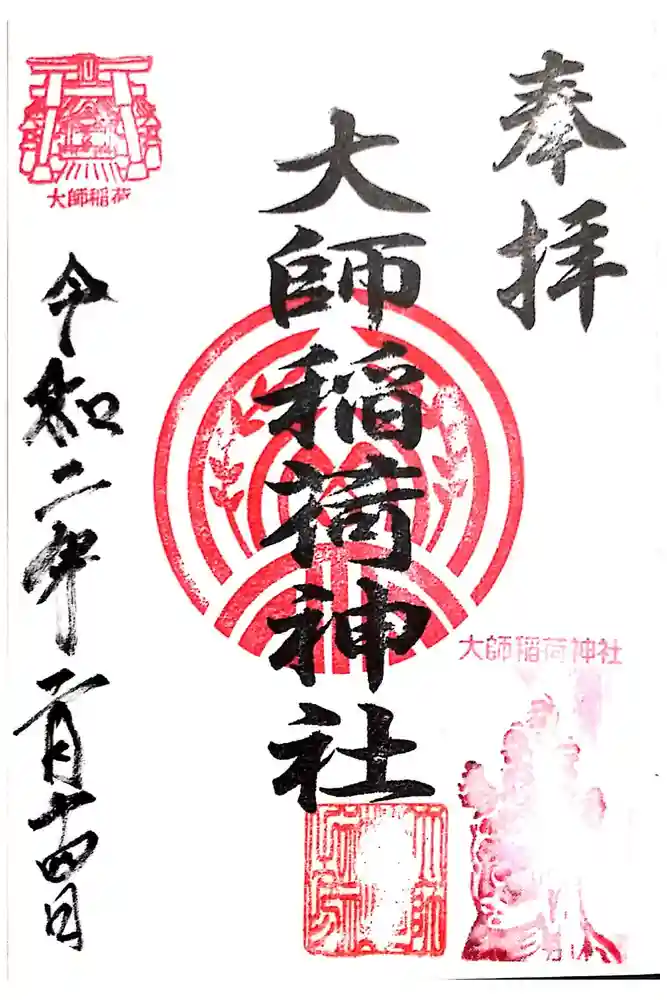 奉拝
大師稲荷神社
大師稲荷神社
大師稲荷
令和二年一月十四日